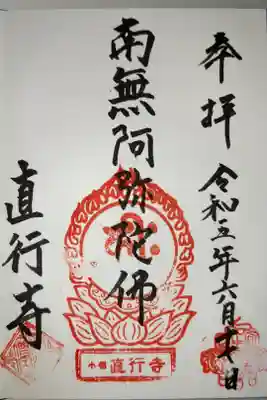 奉拝
令和五年六月十七日
南無阿弥陀佛
直行寺
小樽 直行寺